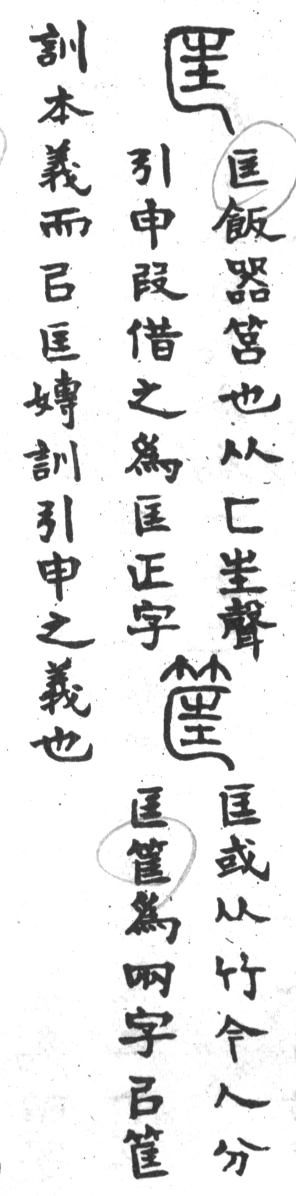 匡
匡飯器筥也从匚㞷聲
引申叚借之爲匡正字
筐
匡或从竹今人分
匡筐爲㒳字㠯筐
訓本義而㠯匡嫥訓引申之義也